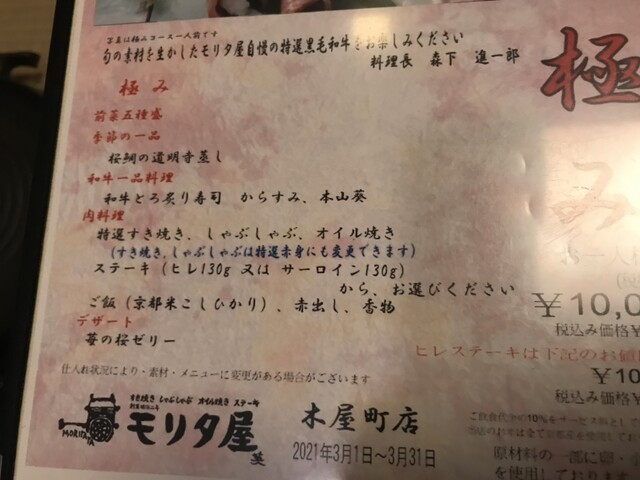 写真は極みコース一人前です
旬の素材を生かしたモリタ屋自慢の特選黒毛和牛をお楽しみください
料理長 森下 進一郎
極み
前菜五種盛
季節の一品
桜鯛の道明寺蒸し
和牛一品料理
和牛とろ炙り寿司 からすみ、本山葵
肉料理
特選すき焼き、しゃぶしゃぶ、オイル焼き
(すき焼き,しゃぶしゃぶは特選赤身にも変更できます)
ステーキ(ヒレ130g 又は サーロイン130g)
から、お選びください
ご飯(京都米こしひかり)、赤出し、香物
デザート
苺の桜ゼリー
仕入れ状況により・素材・メニューに変更がある場合がございます
すき焼き しゃぶしゃぶ オイル焼き ステーキ
MORITAYA
モリタ屋
木屋町店
2021年3月1日~3月31日
極
み
¥10,0
税込み価格¥
ヒレステーキは下記のお値
¥10
税込み価格¥
ご飲食代金の10%をサービス料として
原材料の一部に卵・
を使用しており